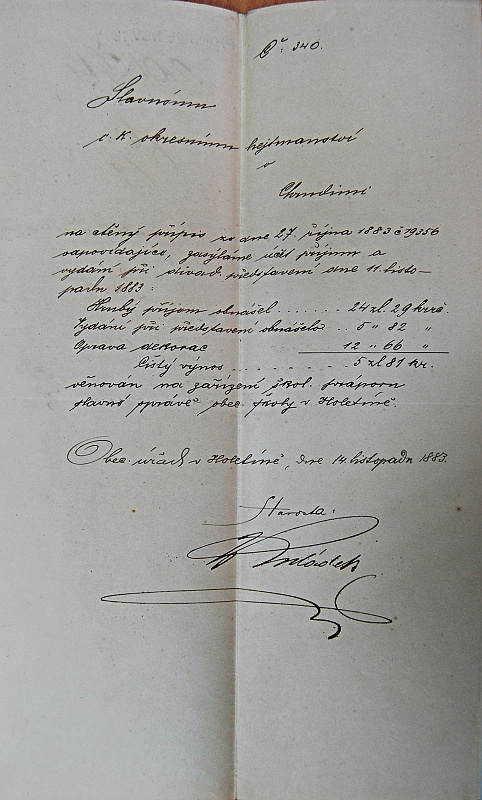 Čº: 340.
Slavnému
c. K. okresnímu hejtmanství
v
Chrudimi
na ctěný přípis ze dne 27. října 1883 č 19356
odpovídajíce, zasýláme účet příjmu a
vydání při divad. představení dne 11. listo-
padu 1883:
Hrubý příjem obnášel ........ 24 zl. 29 kr
Vydání při představení obnášelo .. 5 „ 82 „
Oprava dekorac 12 „ 66 „
čistý výnos .......... 5 zl 81 kr.
věnován na zařízení škol. praporu
slavné správě obec. školy v Holetíně.
Obec. úřad v Holetíně, dne 14. listopadu 1883.
Starosta: